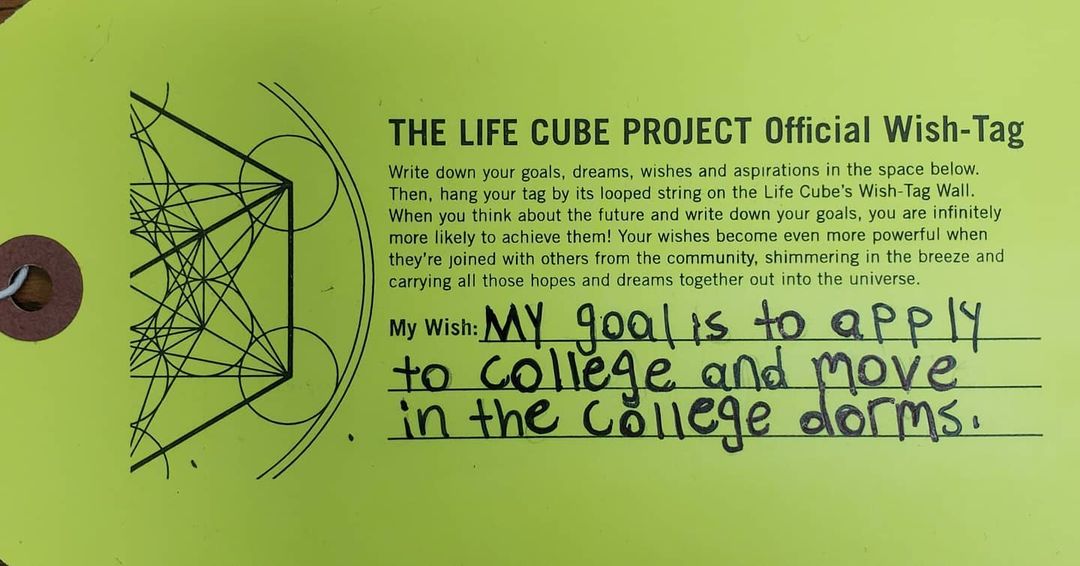 THE LIFE CUBE PROJECT Official Wish-Tag
Write down your goals, dreams, wishes and aspirations in the space below.
Then, hang your tag by its looped string on the Life Cube's Wish-Tag Wall.
When you think about the future and write down your goals, you are infinitely
more likely to achieve them! Your wishes become even more powerful when
they're joined with others from the community, shimmering in the breeze and
carrying all those hopes and dreams together out into the universe.
My Wish: MY goal is to apply
to college and move
in the college dorms.